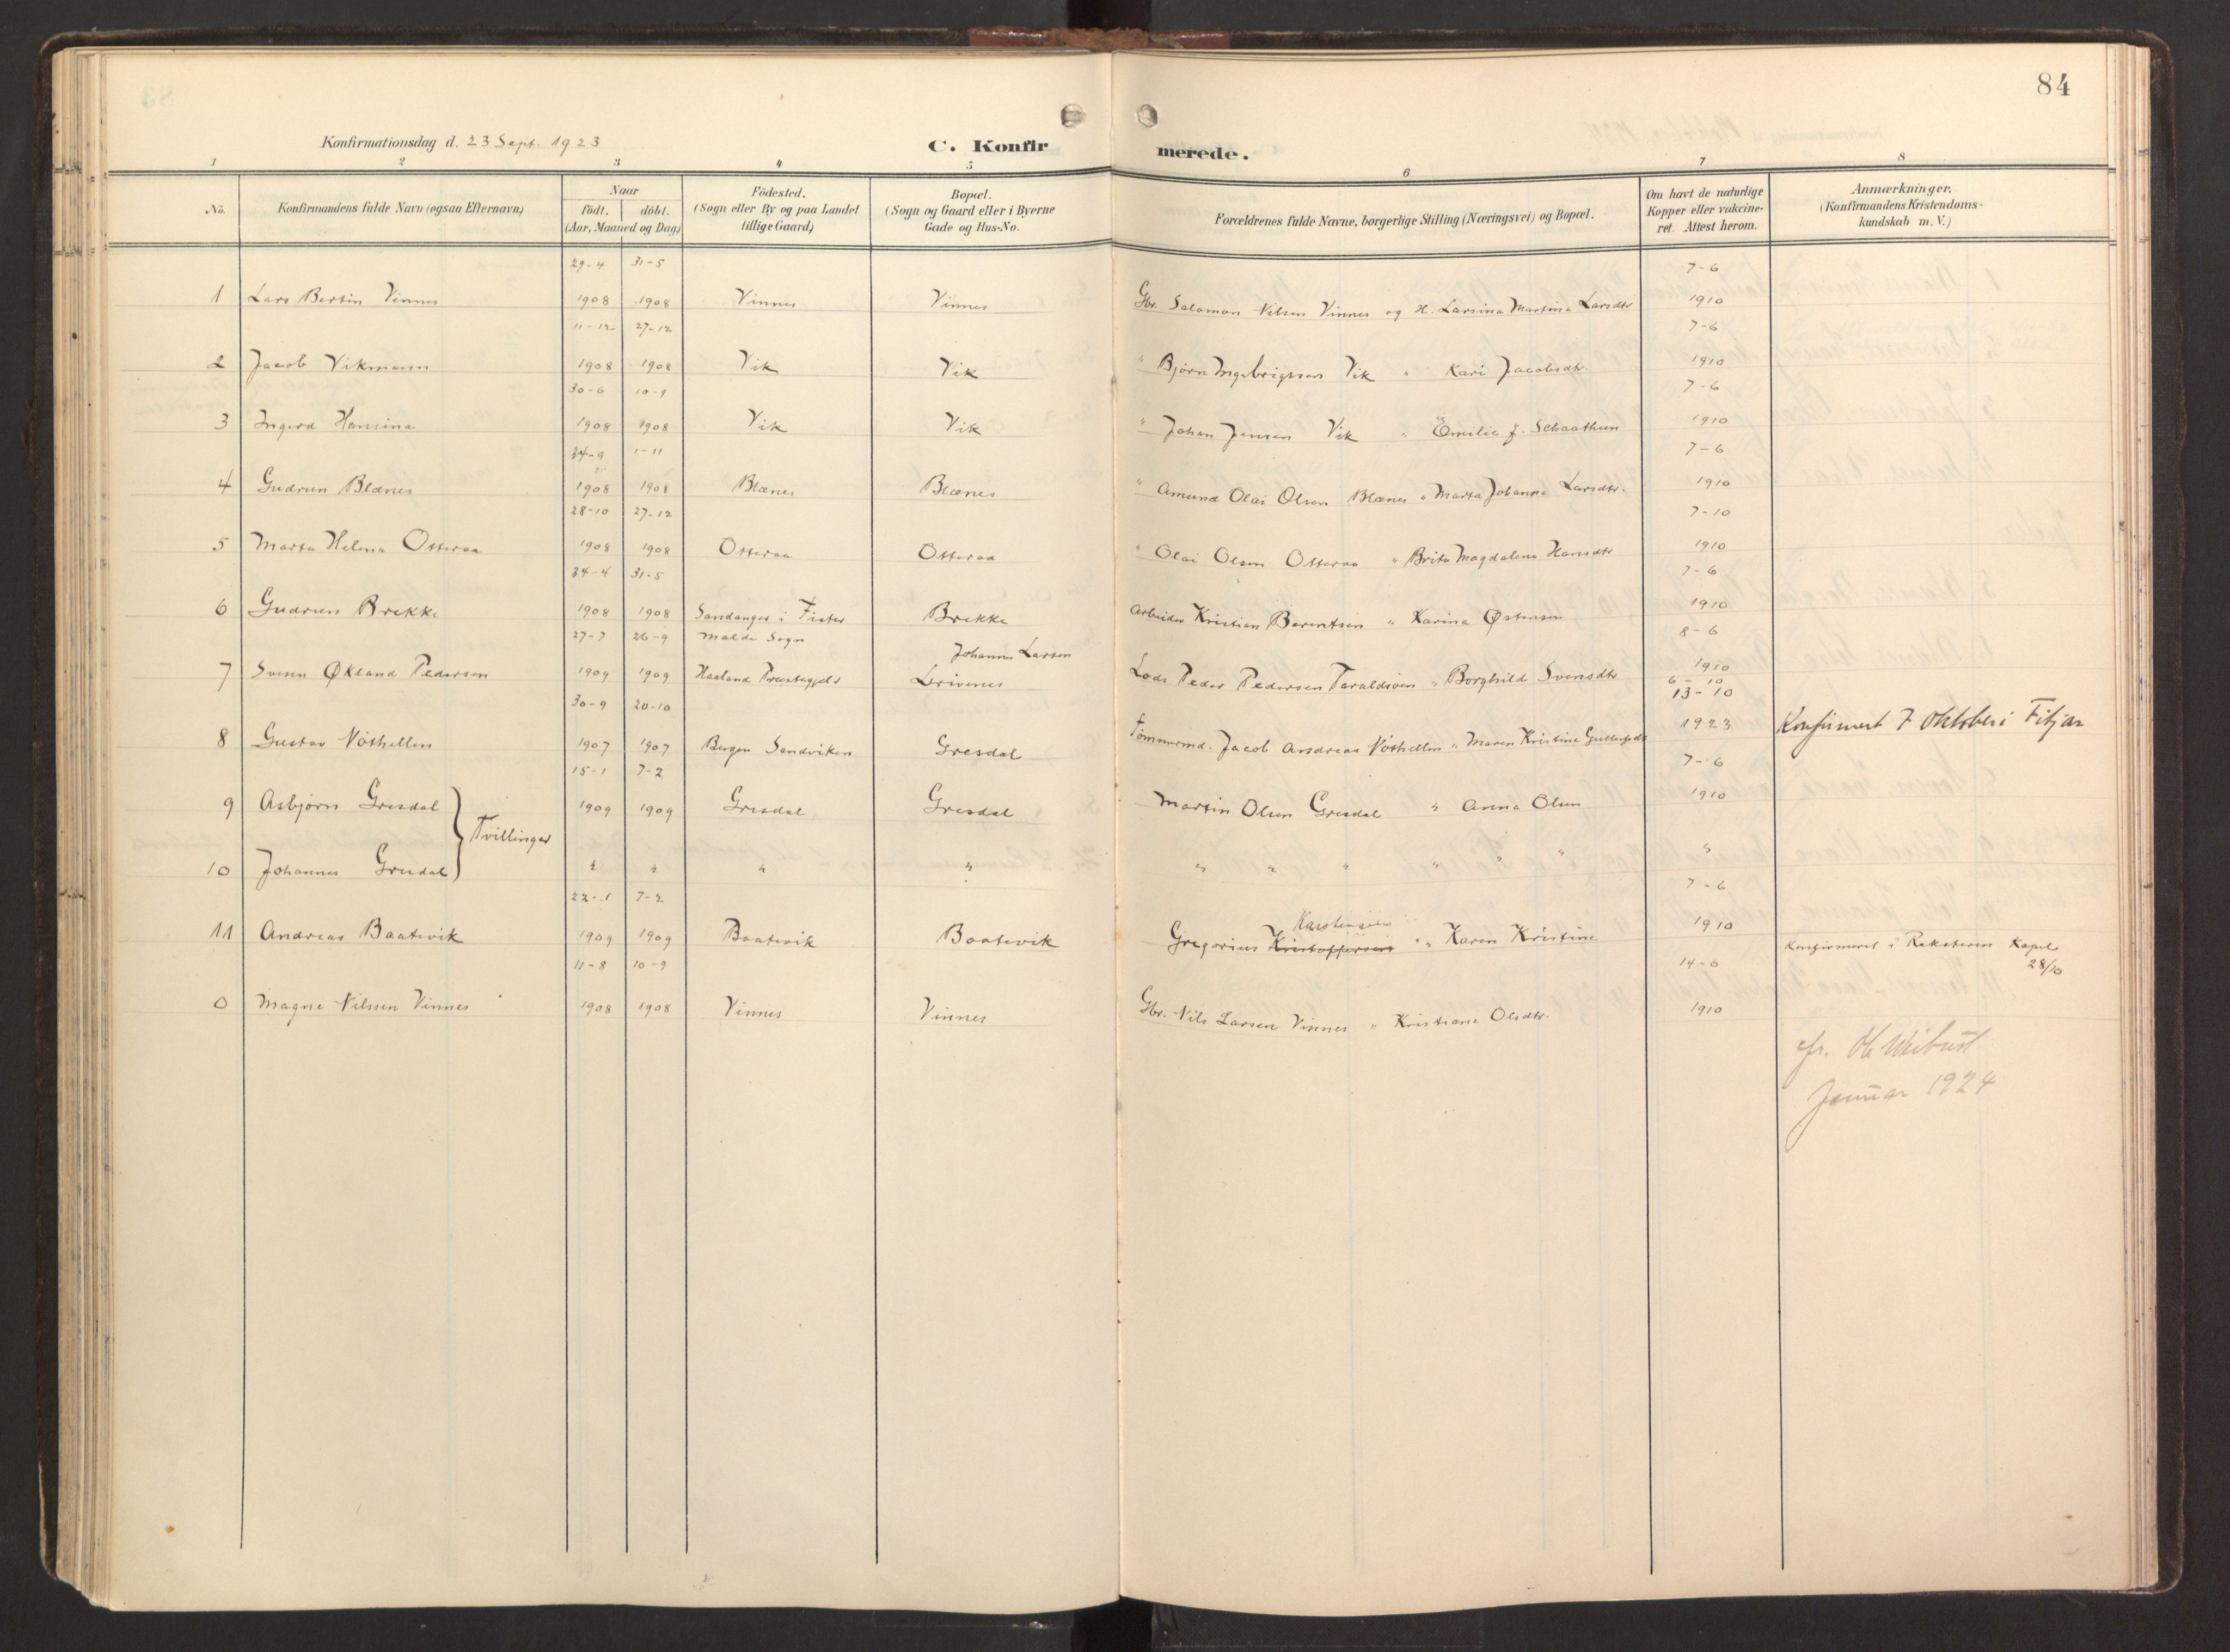 84
Konfirmationsdag d. 23 Sept. 1923
C. Konfirmerede.
1 2 3 4 5 6 7 8
No.
Konfirmandens fulde Navn (ogsaa Efternavn)
Naar
födt. döbt.
(Aar, Maaned og Dag)
Födested.
(Sogn eller By og paa Landet
tillige Gaard)
Bopæl.
(Sogn og Gaard eller i Byerne
Gade og Hus-No.
Forældrenes fulde Navne, borgerlige Stilling (Næringsvei) og Bopæl.
Om havt de naturlige
Kopper eller vakcine-
ret. Attest herom.
Anmærkninger.
(Konfirmandens Kristendoms-
kundskab m. V.)
29-4 31-5 7-6
1 Lars Bertin Vinnes 1908 1908 Vinnes Vinnes Gbr. Salomon Nilsen Vinnes og H. Larsina Martina Larsdtr 1910
11-12 27-12 7-6
2 Jacob Vikmann 1908 1908 Vik Vik " Bjørn Ingebrigtsen Vik " Kari Jacobsdtr. 1910
30-6 10-9 7-6
3 Ingerd Hansina 1908 1908 Vik Vik " Johan Jensen Vik " Emilie J. Schaathun 1910
24-9 1-11 7-6
4 Gudrun Blænes 1908 1908 Blænes Blænes " Amund Olai Olsen Blænes " Marta Johanna Larsdtr. 1910
28-10 27-12 7-10
5 Marta Helena Otteraa 1908 1908 Otteraa Otteraa " Olai Olsen Otteraa " Brita Magdalena Hansdtr 1910
24-4 31-5 7-6
6 Gudrun Brekke 1908 1908 Sandanger i Fister Brekke Arbeider Kristian Berentsen " Karina Østensen 1910
27-7 26-9 Malde Sogn Johannes Larsen 8-6
7 Svenn Økland Pedersen 1909 1909 Haaland Præstegjeld Drivenes Lods Peder Pedersen Taraldsøen " Borghild Svensdtr 1910
6-10
30-9 20-10 13-10
8 Gustav Nöshellen 1907 1907 Bergen Sandviken Gresdal Tömmermd. Jacob Andreas Nöshellen " Maren Kristine 1923 Konfirmert 7 Oktober i Fitjar
15-1 7-2 7-6
9 Asbjørn Gresdal 1909 1909 Gresdal Gresdal Martin Olsen Gresdal " Anna Olsen 1910
Tvillinger
10 Johannes Gresdal " " " " " " " " " " "
22-1 7-2 7-6
Karstensen
11 Andreas Baatevik 1909 1909 Baatevik Baatevik Gregorius Kristoffersen " Karen Kristine 1910 Konfirmeret i Reksteren Kapel
28/10
11-8 10-9 14-6
0 Magne Nilsen Vinnes 1908 1908 Vinnes Vinnes Gbr. Nils Larsen Vinnes " Kristiane Olsdtr. 1910
Januar 1924